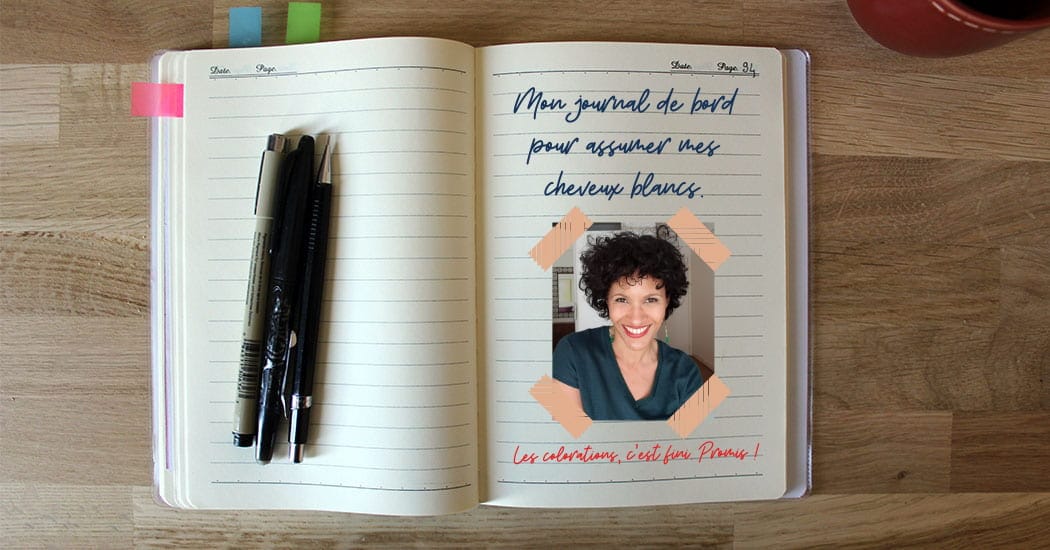 Date. Page.
Date. Page. 94
Mon journal de bord
pour assumer mes
cheveux blancs.
Les colorations, c'est fini. Promis !